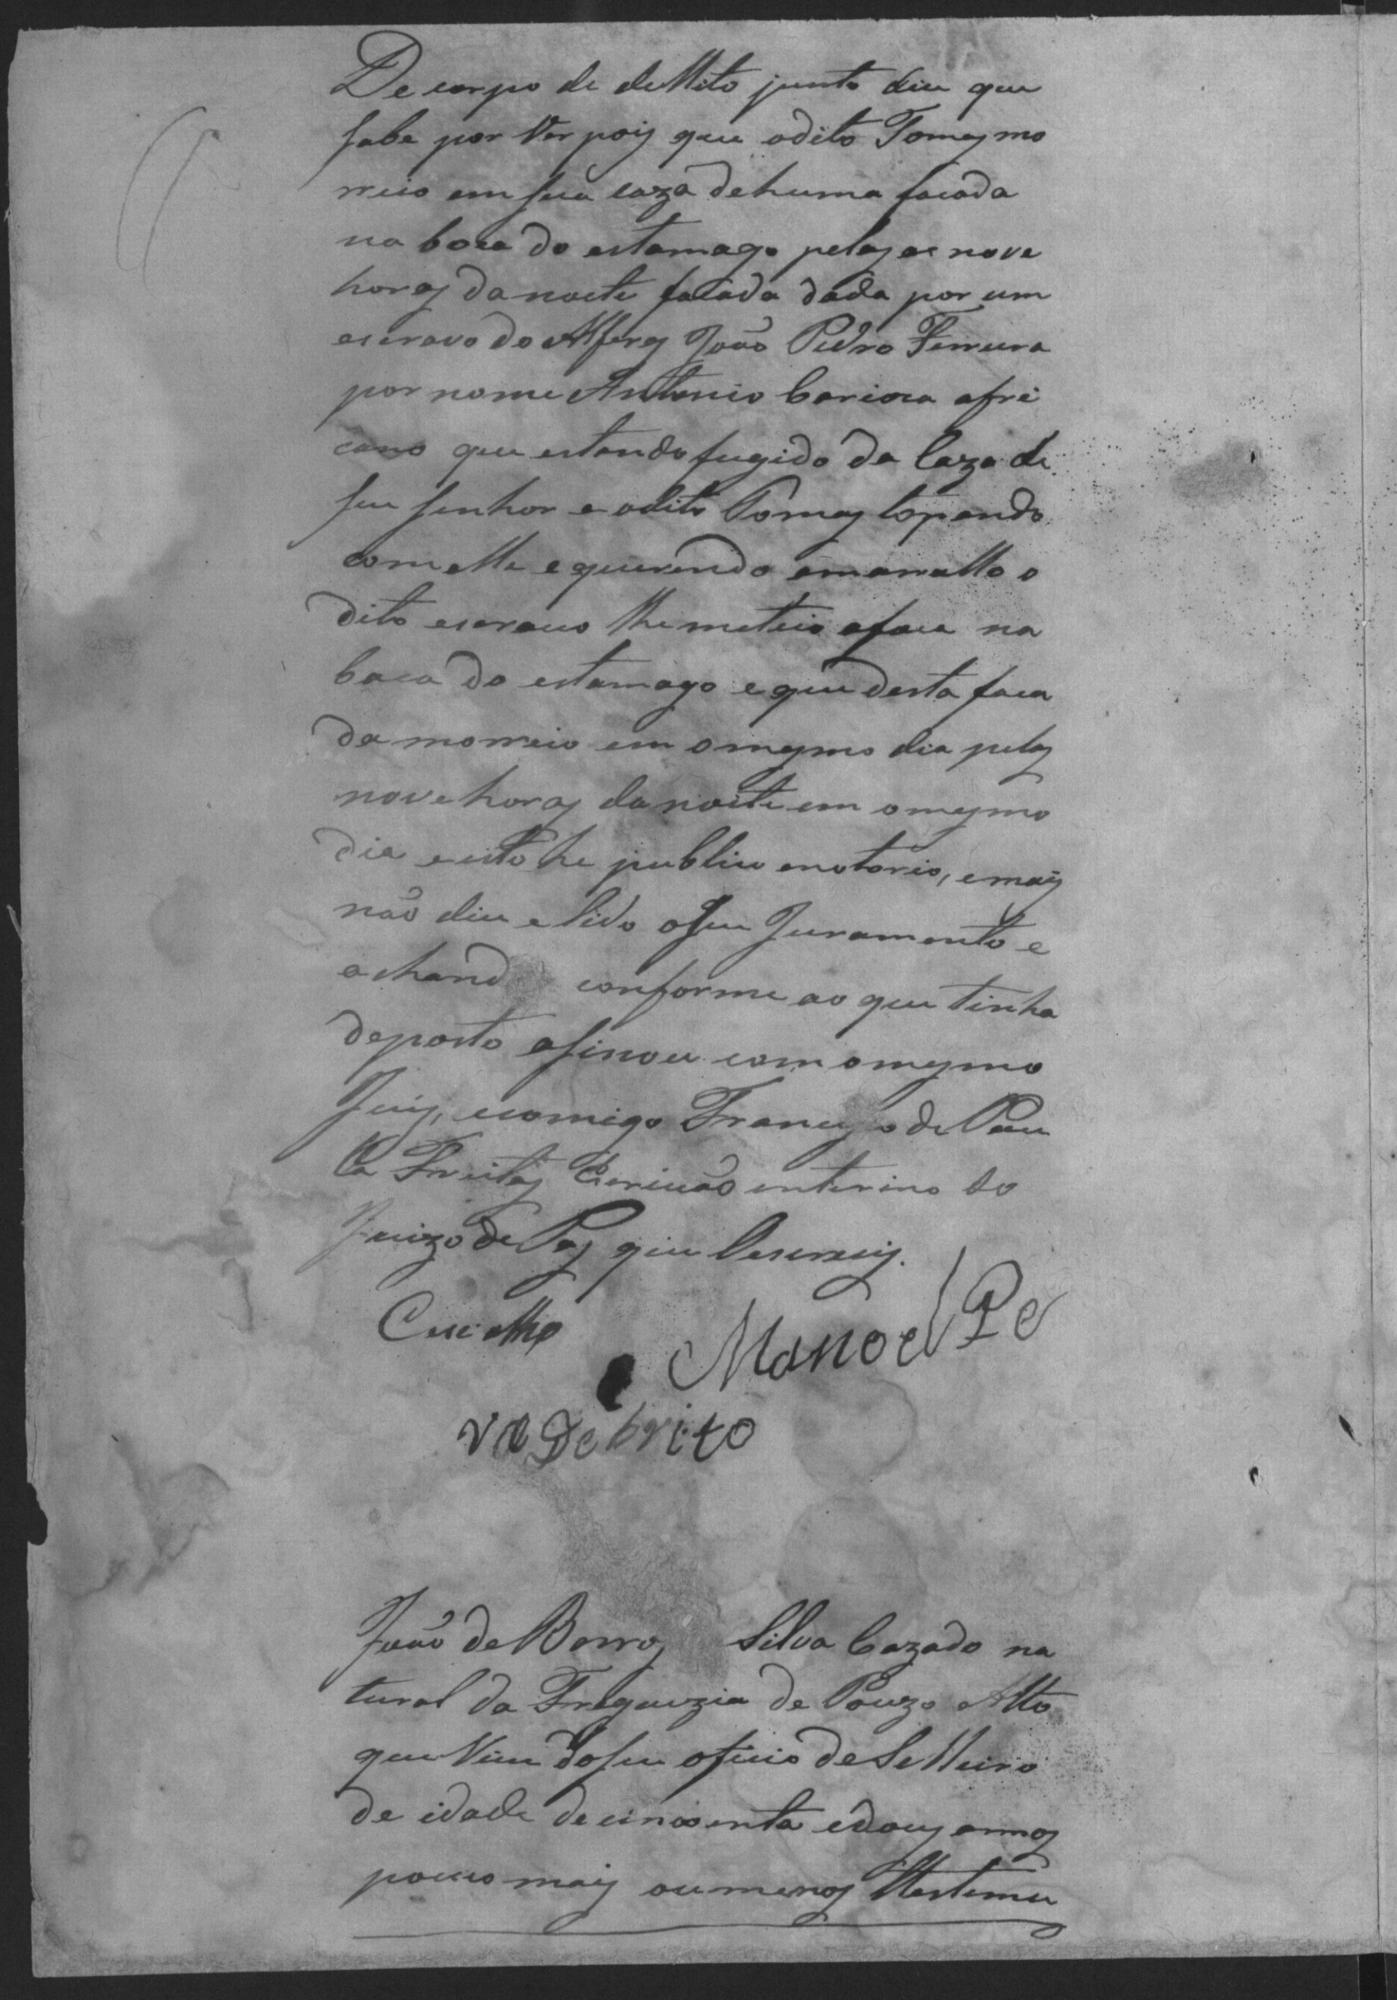 De corpo de dellito junto dice que
sabe por ver pois que o dito Tomas mo
rreio em sua caza de huma facada
na boca do estamago pelas as nove
horas da noite facada dada por um
escravo do Alferes João Pedro Ferreira
por nome Antonio Carioca afri
cano que estando fugido da Caza de
seu senhor e o dito Tomas topando
com elle e querendo amarrallo o
dito escravo lhe meteio a faca na
boca do estamago e que desta faca
da morreio em o mesmo dia pelas
nove horas da noite em o mesmo
dia e isto he publico e notorio, e mais
não dice e lido o seu Juramento e
achand conforme ao que tinha
deposto asinou com o mesmo
Juis, e comigo Francisco de Pau
la Freitas Escrivão enterino do
Juizo de Pas que o escrevy.
Manoel Pe
rª De brito
João de Barros Silva Cazado na
tural da Freguezia de Pouzo Alto
que Vive do seu oficio de Selleiro
de idade de cincoenta e dous annos
pouco mais ou menos testemu